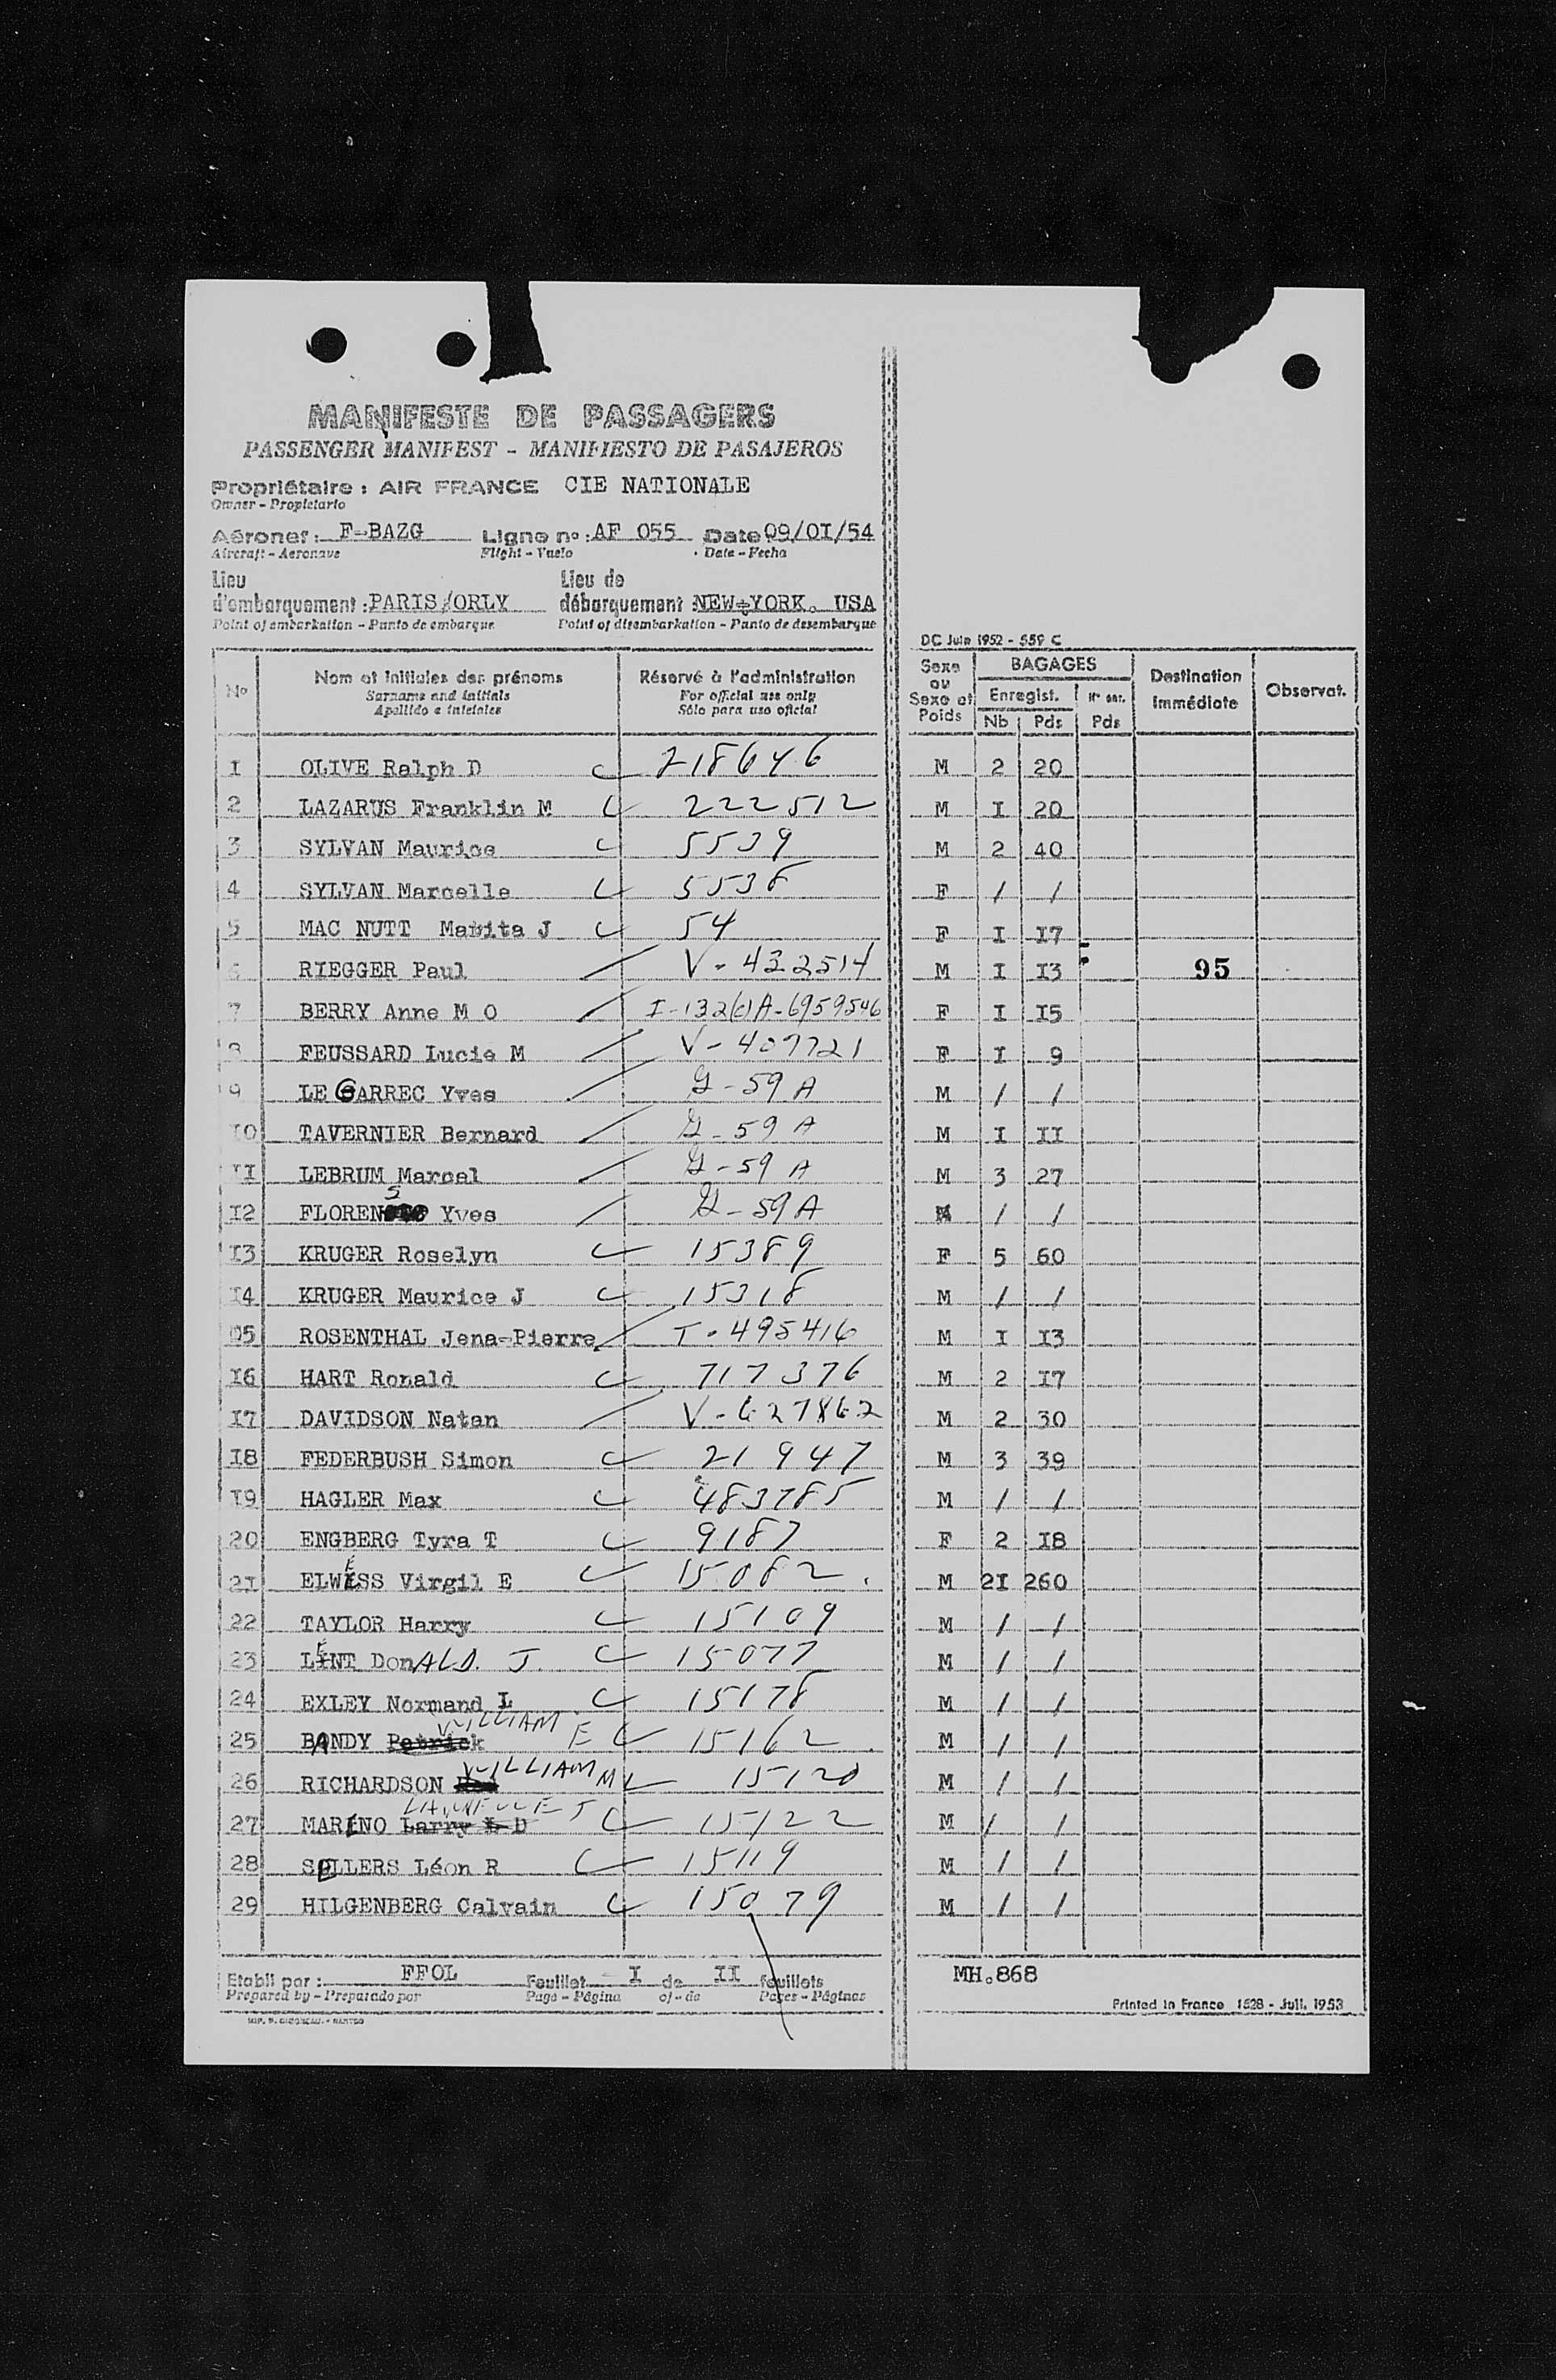 MANIFESTE DE PASSAGERS
PASSENGER MANIFEST - MANIFIESTO DE PASAJEROS
Propriétaire : AIR FRANCE CIE NATIONALE
Owner - Propietario
Aéronef : F-BAZG Ligne n° : AF 055 Date 09/OI/54
Aircraft - Aeronave Flight - Vuelo Date - Fecha
Lieu Lieu de
d'embarquement : PARIS/ORLY débarquement : NEW-YORK. USA
Point of embarkation - Punto de embarque Point of disembarkation - Punto de desembarque
DC Juin 1952 - 559 C
N° Nom et initiales des prénoms Réservé à l'administration Sexe ou Sexe et Poids BAGAGES Destination immédiate Observat.
Surname and initials For official use only Enregist. Nb Pds Pds
Apellido e iniciales Sólo para uso oficial
I OLIVE Ralph D 218646 M 2 20
2 LAZARUS Franklin M 222512 M I 20
3 SYLVAN Maurice 5539 M 2 40
4 SYLVAN Marcelle 5538 F / /
5 MAC NUTT J 54 F I I7
6 RIEGGER Paul V-432514 M I I3 95
7 BERRY Anne M O I-132(c) A-6959546 F I I5
8 FEUSSARD Lucie M V-407721 F I 9
9 LE GARREC Yves G-59A M / /
IO TAVERNIER Bernard G-59A M I II
II LEBRUM Marcel G-59A M 3 27
I2 FLORENS Yves G-59A M / /
I3 KRUGER Roselyn 15389 F 5 60
I4 KRUGER Maurice J 15318 M / /
ROSENTHAL Jena-Pierre T-495416 M I I3
I6 HART Ronald 717376 M 2 I7
I7 DAVIDSON Natan V-627862 M 2 30
I8 FEDERBUSH Simon 21947 M 3 39
I9 HAGLER Max 483785 M / /
20 ENGBERG Tyra T 9187 F 2 I8
2I ELWESS Virgil E 15082 M 2I 260
22 TAYLOR Harry 15109 M / /
23 LENT DonALD. J. 15077 M / /
24 EXLEY Normand L 15178 M / /
25 BANDY Patrick WILLIAM E 15162 M / /
26 RICHARDSON WILLIAM M 15120 M / /
27 MARINO Larry D J 15122 M / /
28 SELLERS Léon R 15119 M / /
29 HILGENBERG Calvain 15079 M / /
Etabli par : FFOL Feuillet I de II feuillets MH.868
Prepared by - Preparado por Page - Página of - de Pages - Páginas
Printed in France 1528 - Juil. 1953